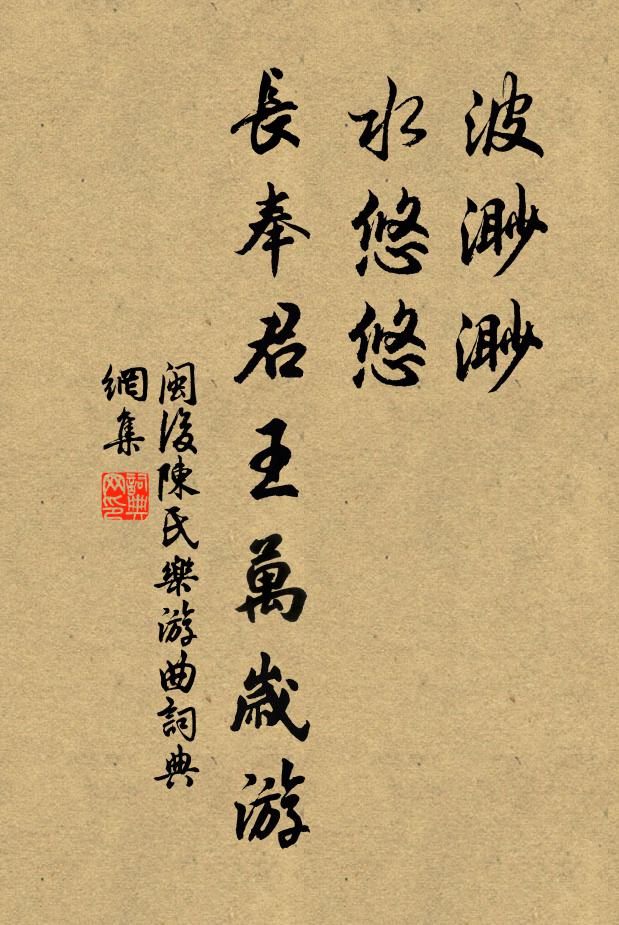 波渺渺
水悠悠
長奉君王萬歲游
閩後陳氏樂游曲詞典
網集
詞典
网印